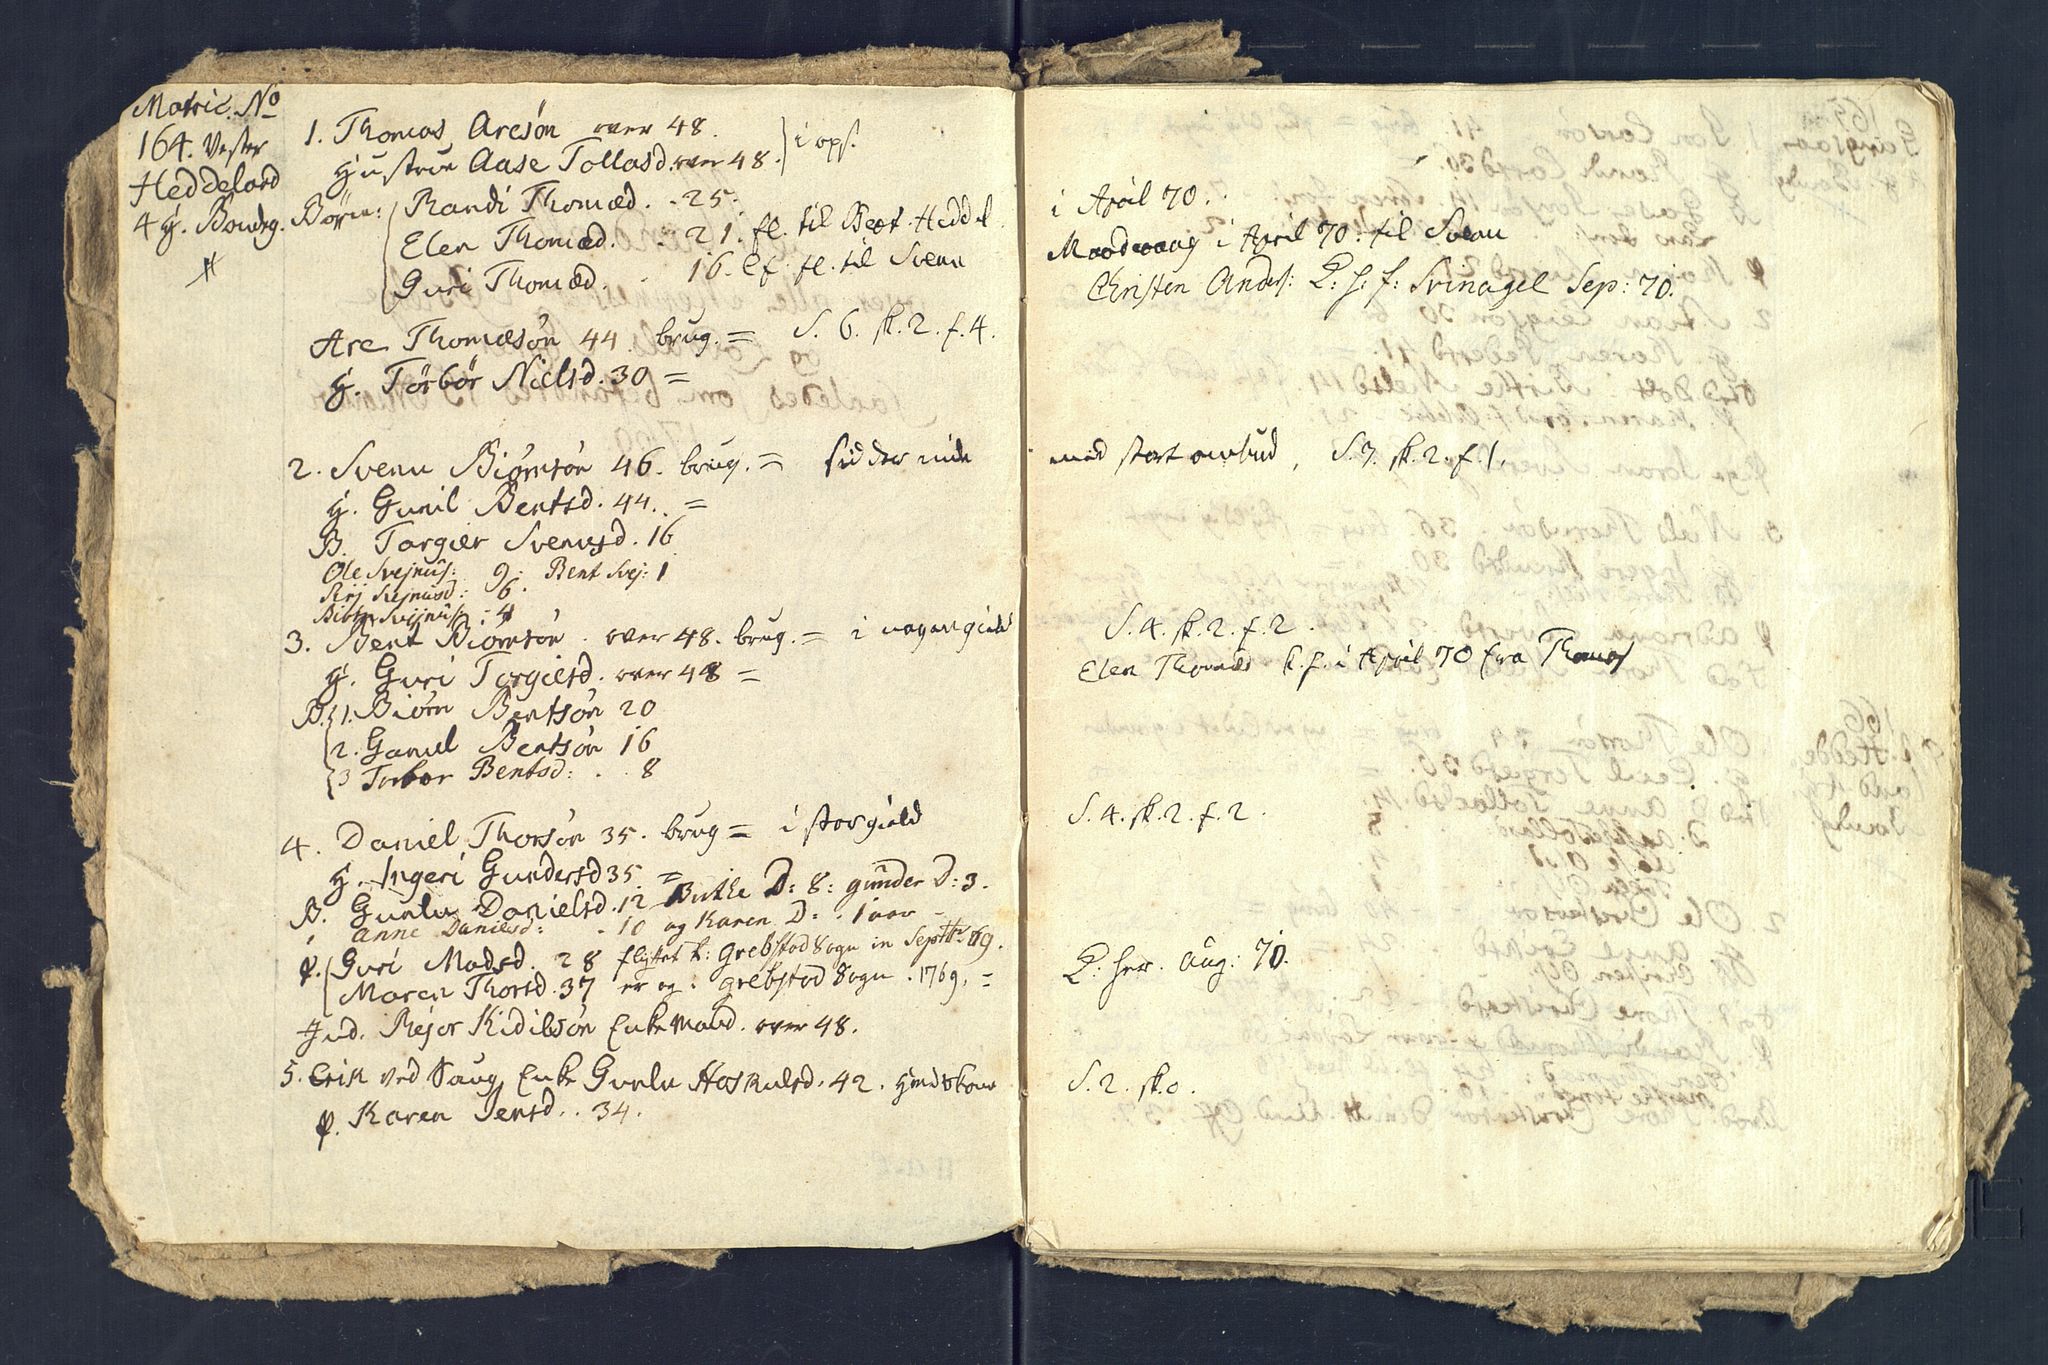 Matric. No
164. Vester
Heddeland
4 H. Bondeg.
1. Thomas Aresøn over 48.
Hustrue Aase Tollasd. over 48. } i ops.
Børn: Randi Thomæd. . 25.
Elen Thomæd. . 21. fl. til Bent Heddel.
Guri Thomæd. . 16. fl. til Svenu
Are Thomæsøn 44 brug. = S. 6. sk. 2. f. 4.
H. Torbor Nielsd. 30 =
2. Svenu Biørnsøn 46. brug. = sidder inde
H. Gunil Bentsd. 44. =
B. Torgier Svenusd. 16
Ole Svejnus: 9: Bent Svej: 1
Siri Svejnusd: 6.
Svijnus: 4
3. Bent Biørnsøn . over 48. brug. = i
H. Guri Torgiesd. over 48 =
B. 1. Biørn Bentsøn 20
2. Gamel Bentsøn 16
3 Torbor Bentsd: . . 8
4. Daniel Thorsøn 35. brug = i stor gield
H. Ingeri Gundersd 35 =
B. Gunlu Danielsd. 12 Birthe D: 8: gunder D: 3.
Anne Danielsd: . 10 og Karen D: . 1 aar
p. Guri Madsd. 28 flyttet t: Grebstad Sogn in Septbr: 69.
Maren Thorsd. 37 er og i grebstad Sogn . 1769. =
Ind. Rejor Kidilsøn Enkemand. over 48.
5. Erik ved Saug Enke Gunlu Haskulsd. 42. Huuskone
p. Karen Jensd. . 34.
i April 70.
i April 70: til Svenu
Christen Anders: Sep: 70.
med stort S. 7. sk. 2. f. 1.
S. 4. sk. 2. f. 2.
Elen Thomæd k. f. i April 70 fra Thomas
S. 4. sk. 2. f. 2.
aug: 70.
S. 2. sk. 0.